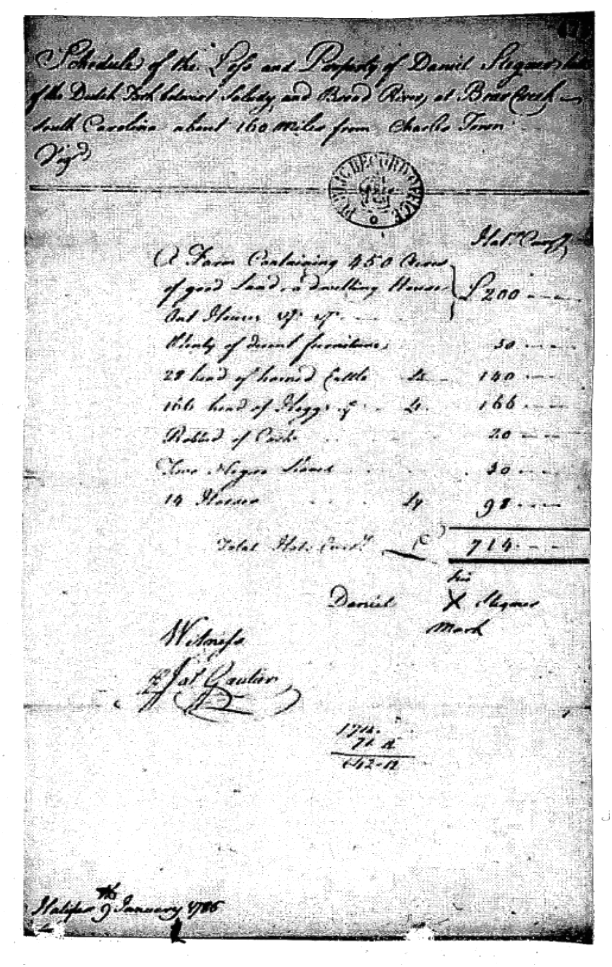 Schedule of the Loss and Property of Daniel Stigmer late
of the Dutch Fork between Saludy and Broad River, at Brier Creek in
South Carolina about 160 Miles from Charles Town
Viz.d
PUBLIC RECORD OFFICE
Hal.x Curr.y
A Farm Containing 450 Acres
of good Land, a dwelling House
Out Houses &c. &c.
£ 200
Plenty of decent furniture 30
28 head of horned Cattle 140
166 head of Hoggs 166
Robbed of Cash 20
Two Negroe Slaves 30
14 Horses 98
Total Hal. Curr.y £ 714
his
Daniel X Stigmer
Mark
Witness
Gautier
714
71 "
642
Halifax 9th January 1786